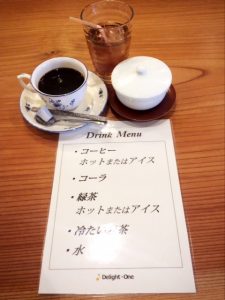 Drink Menu
・コーヒー
ホットまたはアイス
・コーラ
・緑茶
ホットまたはアイス
・冷たいお茶
・水
Delight-One